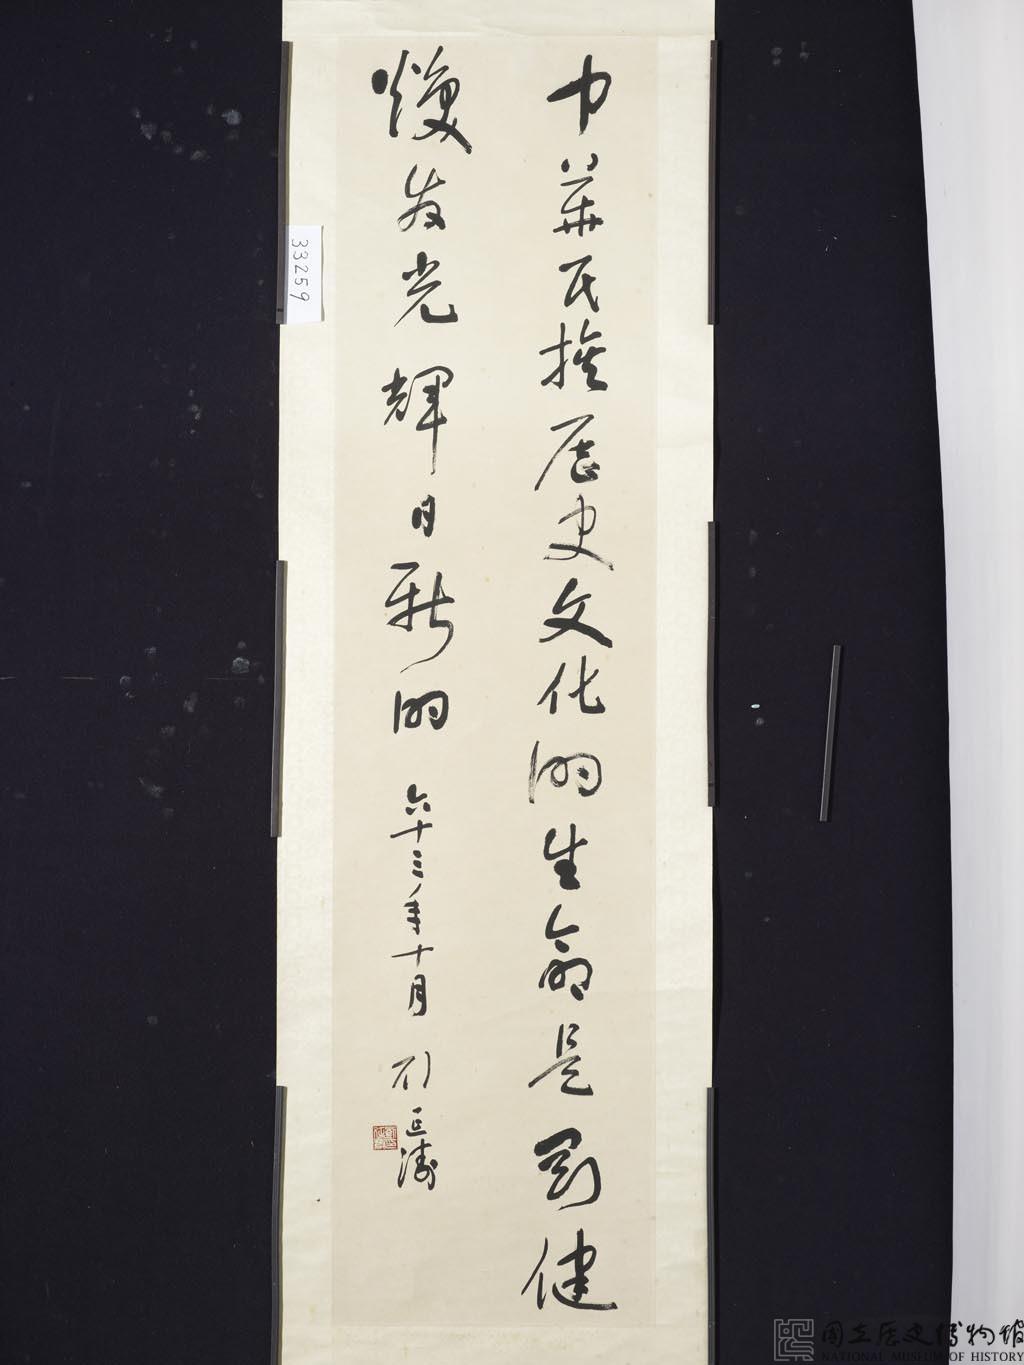 中華民族歷史文化的生命是剛健
煥发光輝日新的
六十三年十月
刘延濤
33259
國立歷史博物館
NATIONAL MUSEUM OF HISTORY